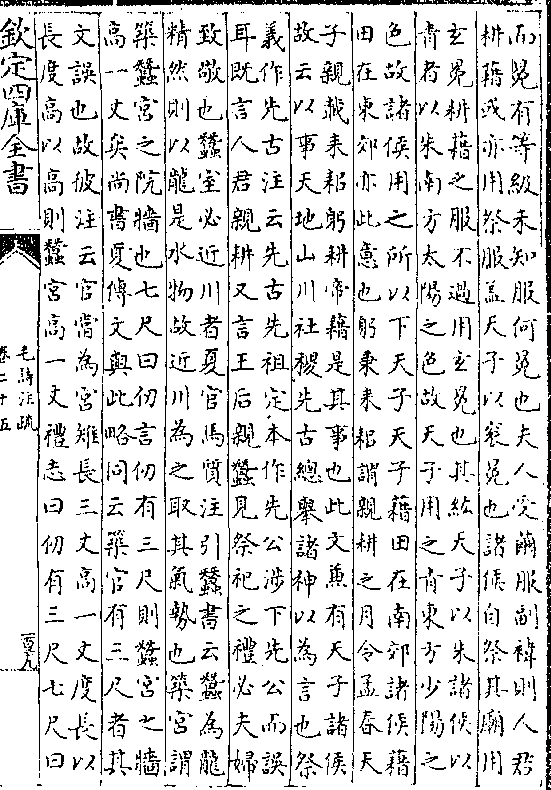 而冕有等級未知服何冕也夫人受繭服副褘則人君
耕藉或亦用祭服蓋天子以衮冕也諸侯自祭其廟用
玄冕耕藉之服不過用玄冕也其紘天子以朱諸侯以
青者以朱南方太陽之色故天子用之青東方少陽之
色故諸侯用之所以下天子天子藉田在南郊諸侯藉
田在東郊亦此意也躬秉耒耜謂親耕之月令孟春天
子親載耒耜躬耕帝籍是其事也此文兼有天子諸侯
故云以事天地山川社稷先古總舉諸神以為言也祭
義作先古注云先古先祖定本作先公涉下先公而誤
耳既言人君親耕又言王后親蠶見祭祀之禮必夫婦
致敬也蠶室必近川者夏官馬質注引蠶書云蠶為龍
精然則以龍是水物故近川為之取其氣勢也築宮謂
築蠶宮之院牆也七尺曰仞言仞有三尺則蠶宮之牆
高一丈矣尚書夏傳文與此略同云築宮有三尺者其
文誤也故彼注云官當為宮雉長三丈高一丈度長以
長度高以高則蠶宮高一丈禮志曰仞有三尺七尺曰
欽定四庫全書
毛詩注疏
卷二十五